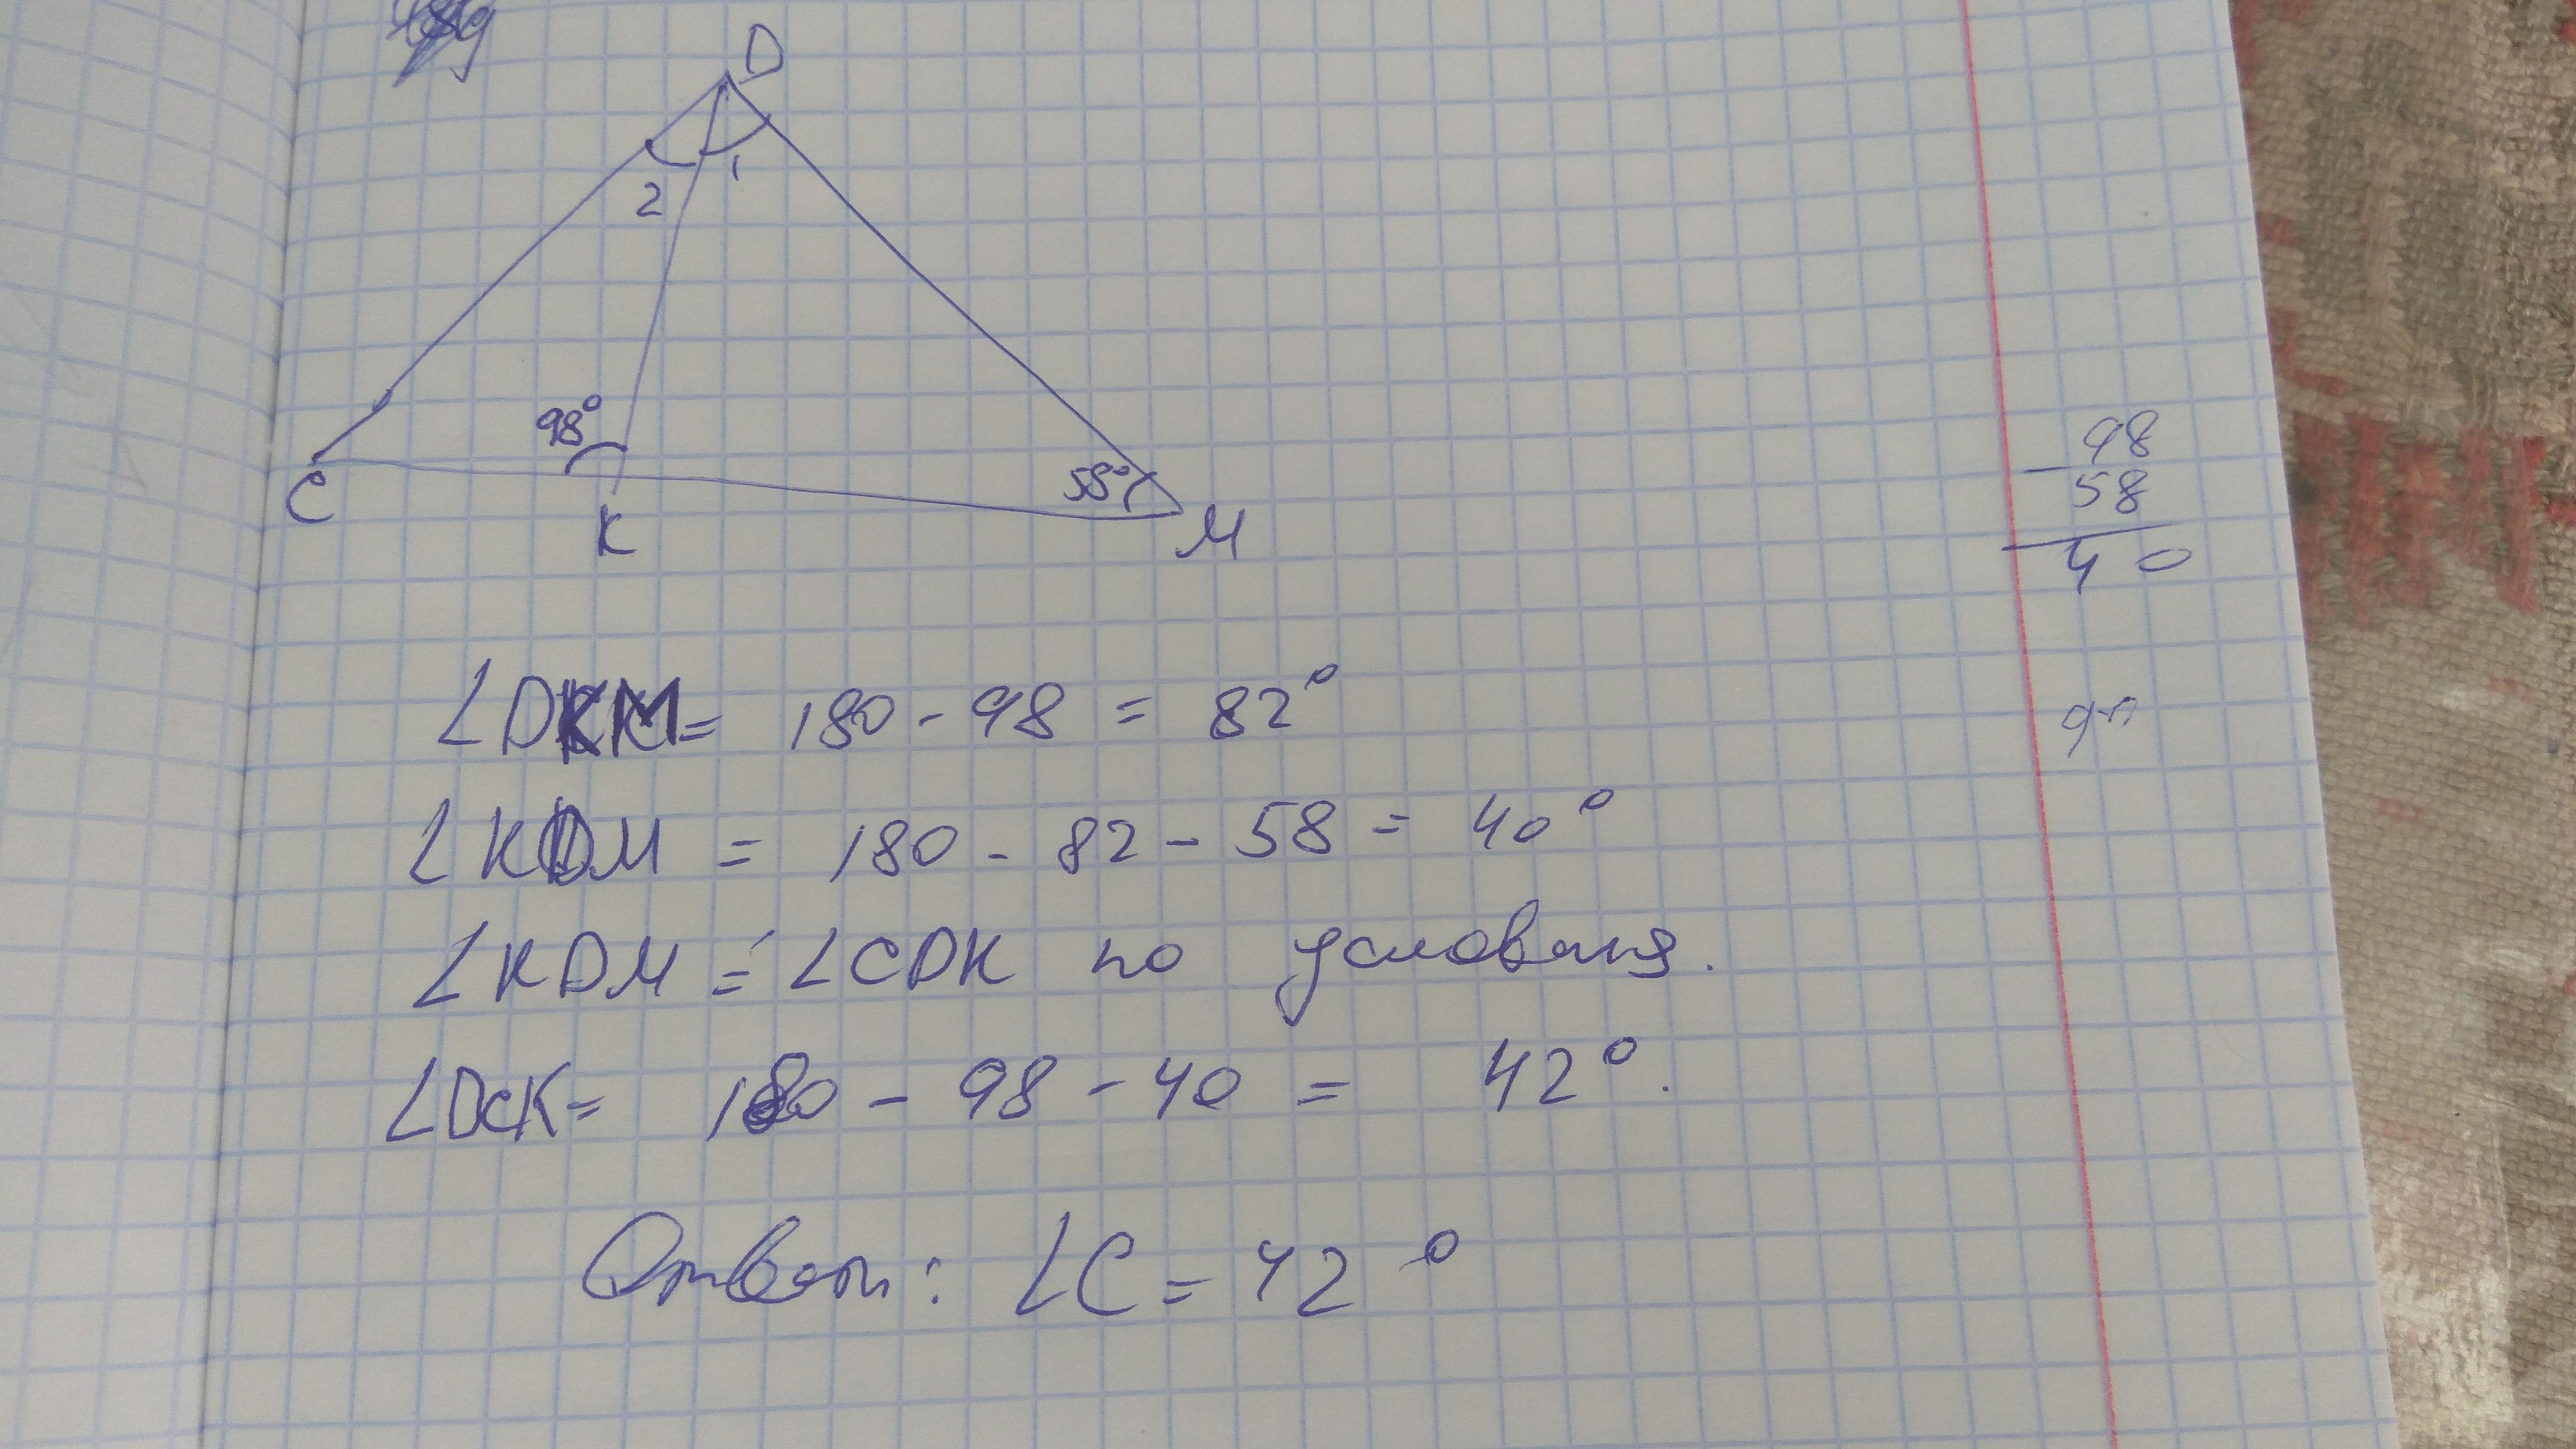 D
2 1
98°
58°
C
K
M
98
- 58
40
∠DKM = 180 - 98 = 82°
∠KDM = 180 - 82 - 58 = 40°
∠KDM = ∠CDK по условия.
∠DCK = 180 - 98 - 40 = 42°.
Ответ: ∠C = 42°